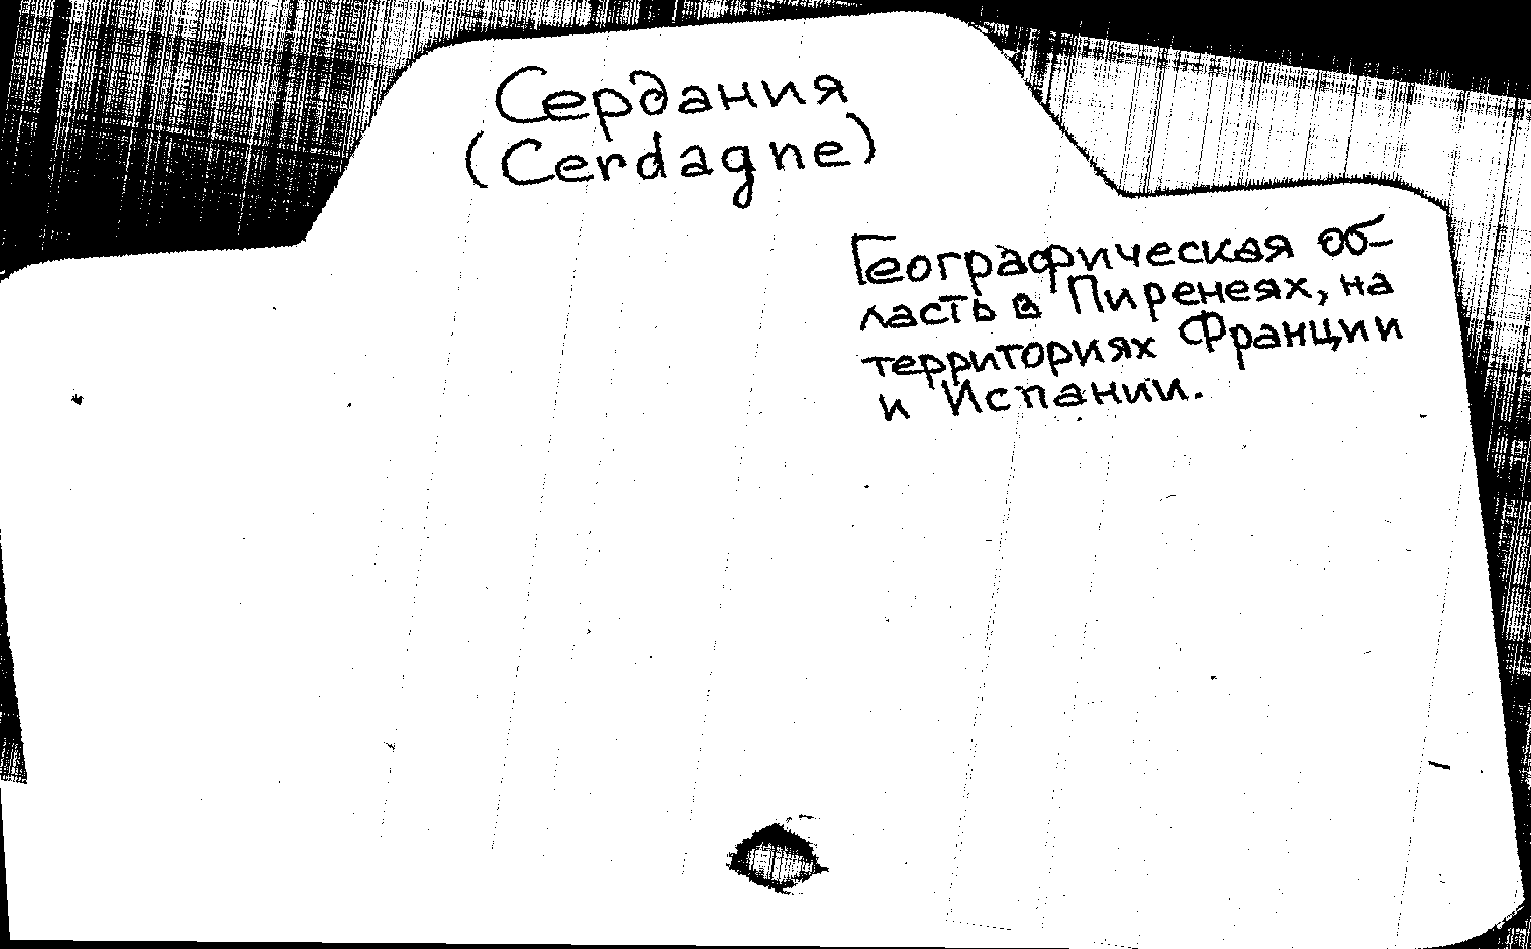 Сердания
(Cerdagne)
Географическая об-
ласть в Пиренеях, на
территориях Франции
и Испании.